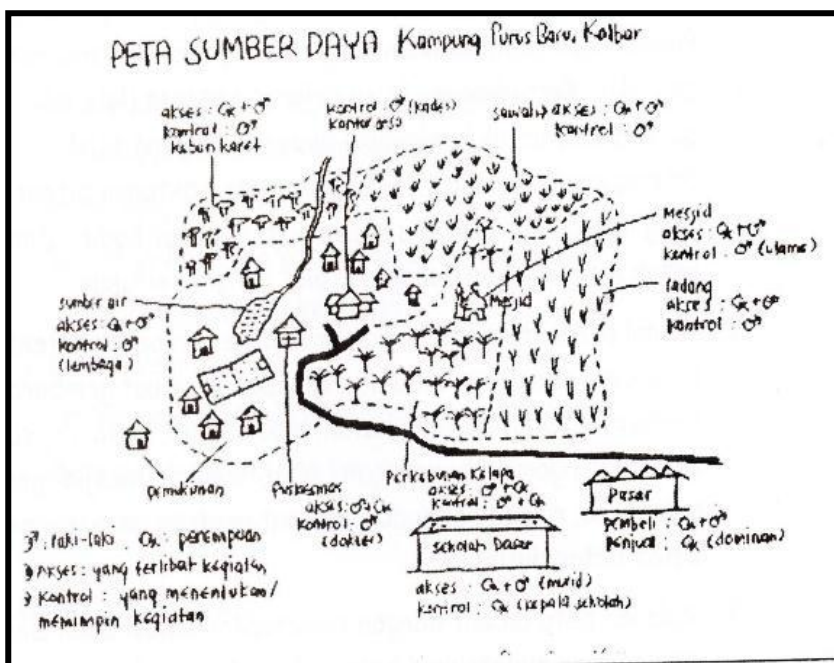 PETA SUMBER DAYA Kampung Purus Baru, Kalbar
akses : ♀ + ♂
kontrol : ♂
kebun karet
kontrol : ♂ (kades)
kantor desa
sawah → akses : ♀ + ♂
kontrol : ♂
Mesjid
akses : ♀ + ♂
kontrol : ♂ (ulama)
ladang
akses : ♀ + ♂
kontrol : ♂
Mesjid
sumber air
akses : ♀ + ♂
kontrol : ♂
(lembaga)
pemukiman
Puskesmas
akses : ♂ + ♀
kontrol : ♂
(dokter)
Perkebunan Kelapa
akses : ♂ + ♀
kontrol : ♂ + ♀
Sekolah Dasar
akses : ♀ + ♂ (murid)
kontrol : ♀ (kepala sekolah)
Pasar
pembeli : ♀ + ♂
penjual : ♀ (dominan)
♂ : laki-laki , ♀ : perempuan
→ Akses : yang terlibat kegiatan
→ Kontrol : yang menentukan/
memimpin kegiatan